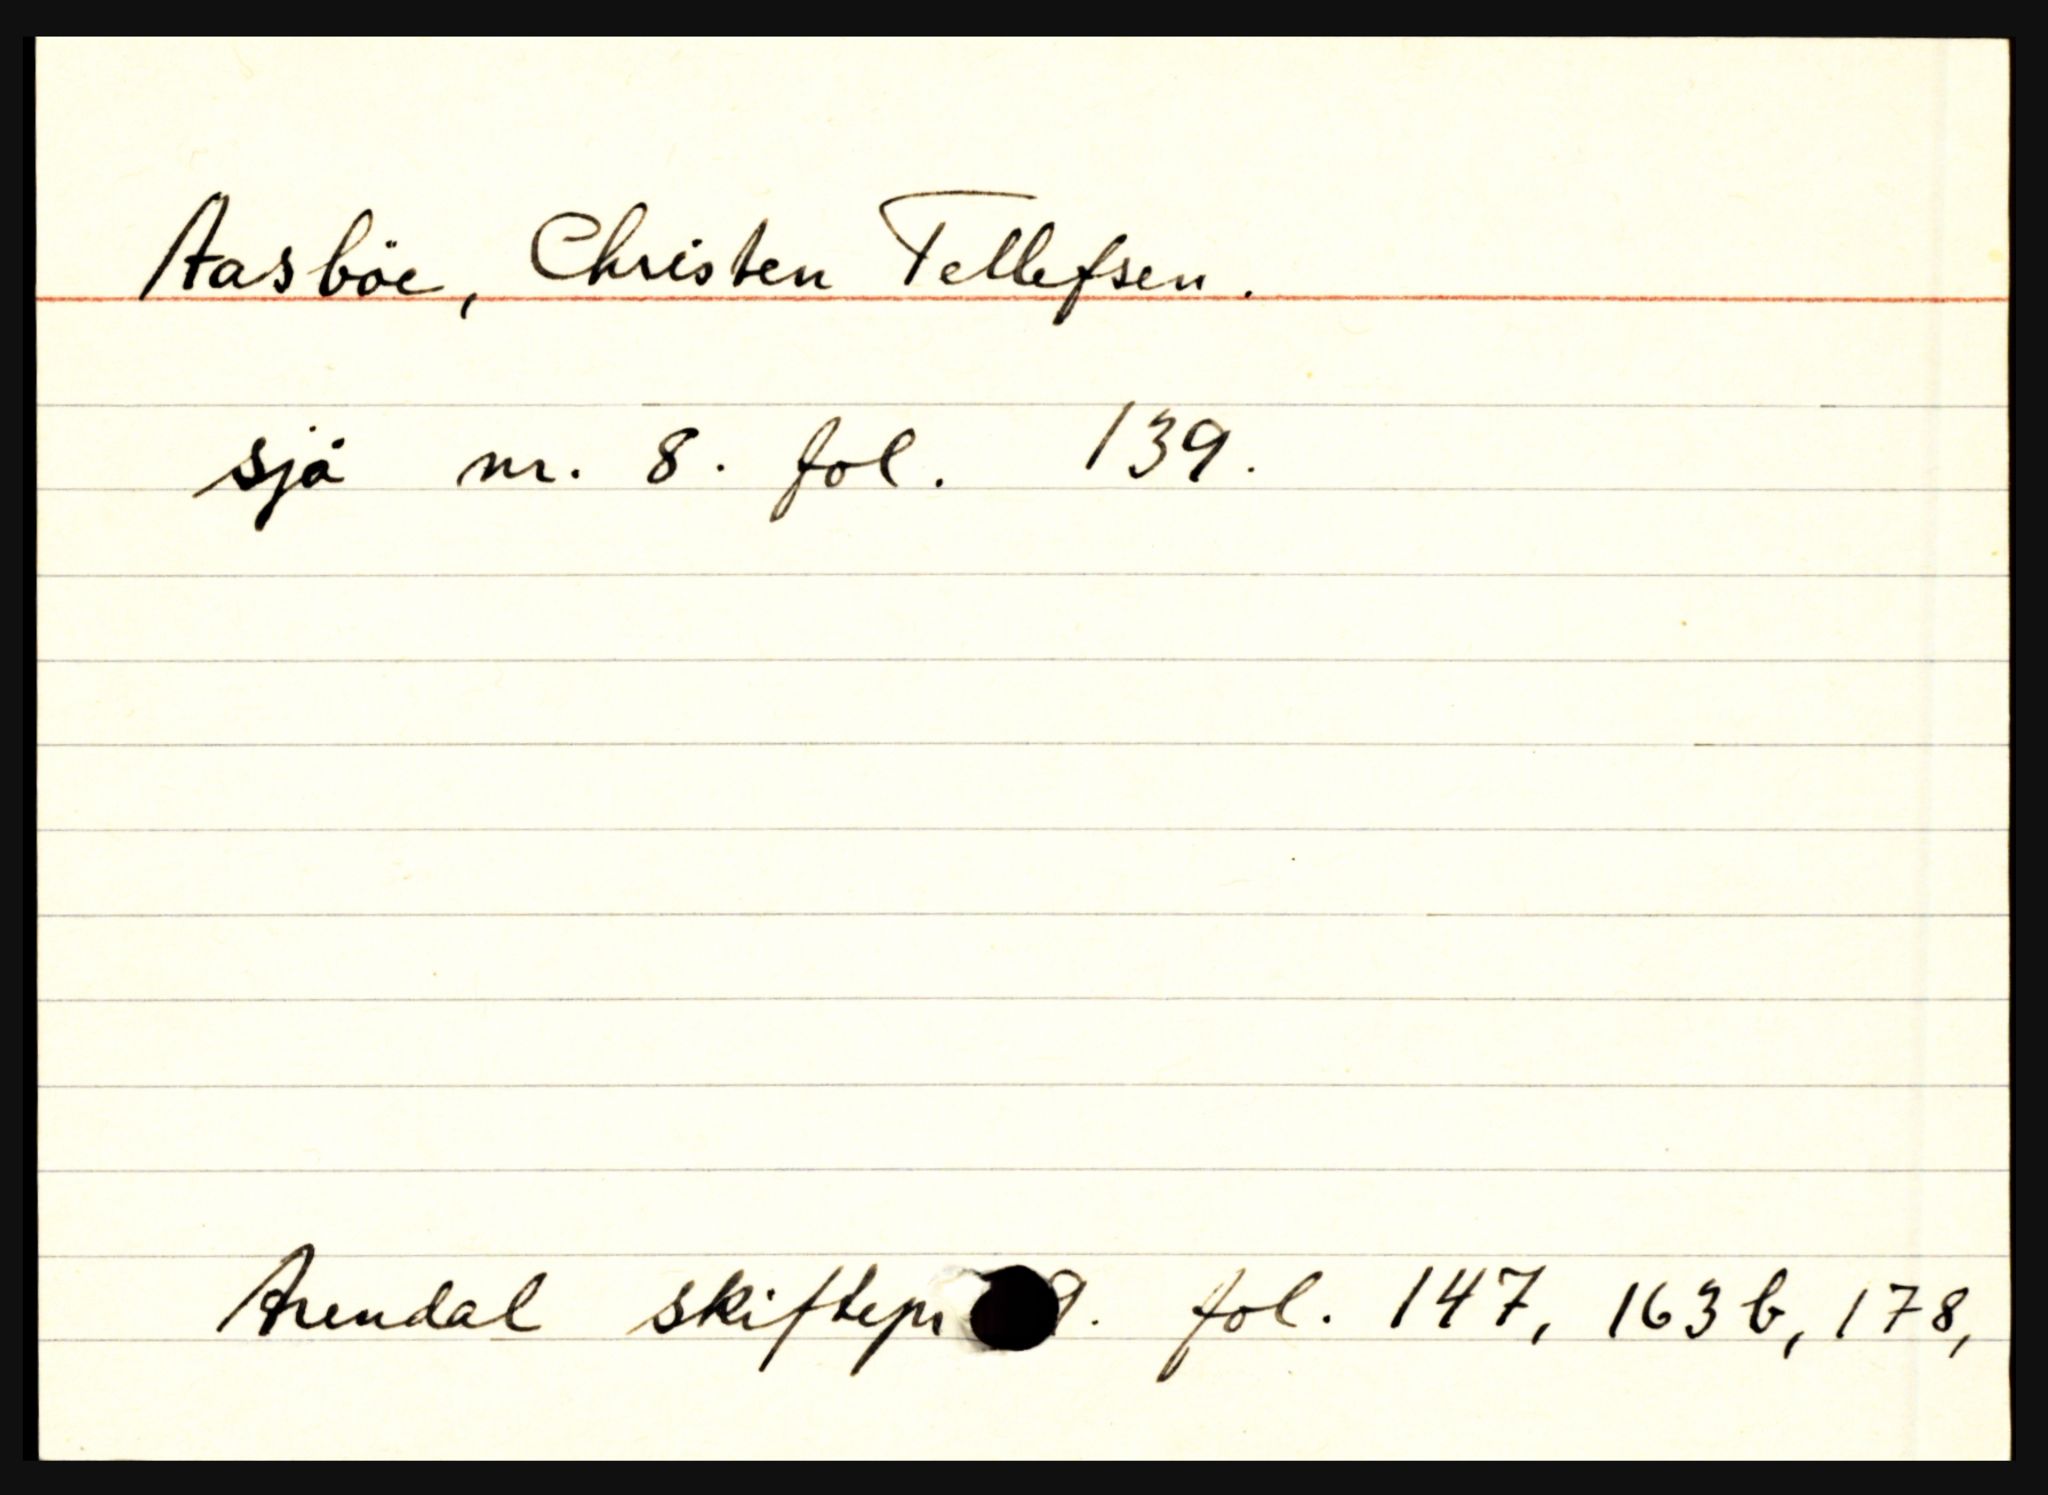 Aasböe, Christen Tellefsen.
sjå nr. 8. fol. 139.
Arendal skiftepr 9. fol. 147, 163 b, 178,